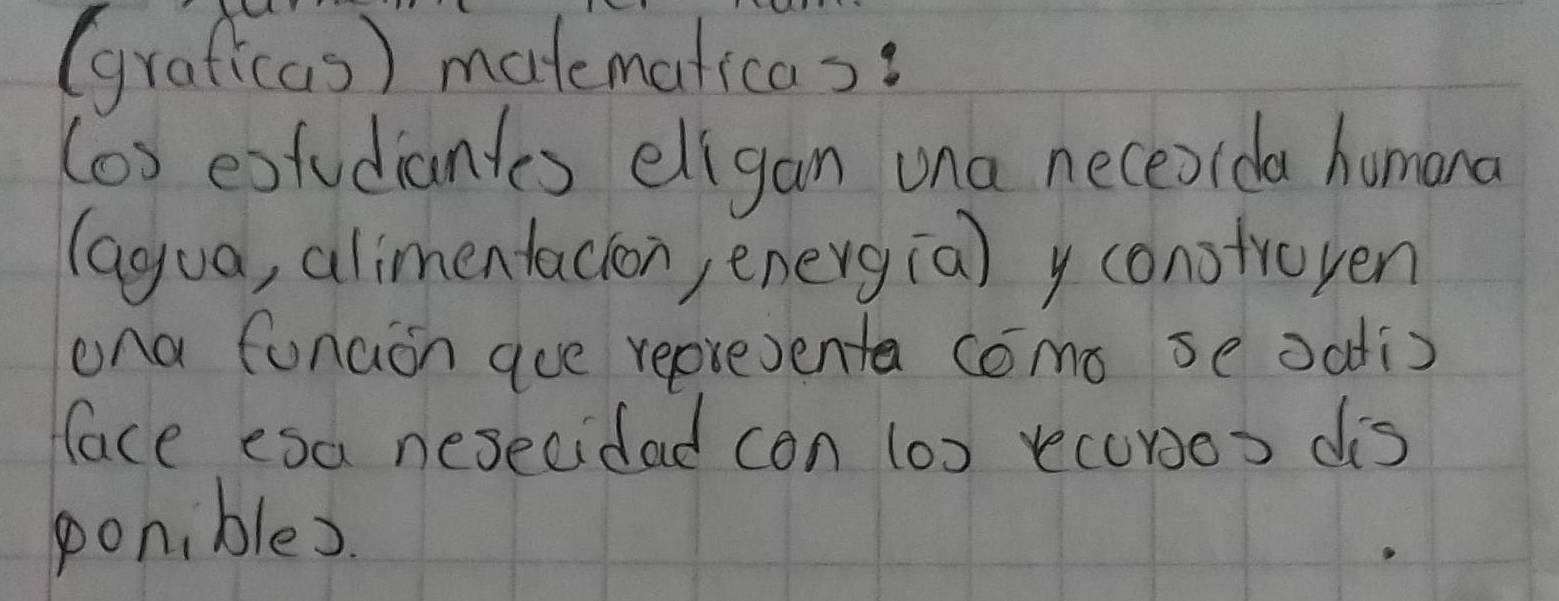 (graficas) matematicas:
los estudiantes eligan una necesida humana
(agua, alimentación, energía) y construyen
una función que representa cómo se satis
face esa nesecidad con los recursos dis
ponibles.